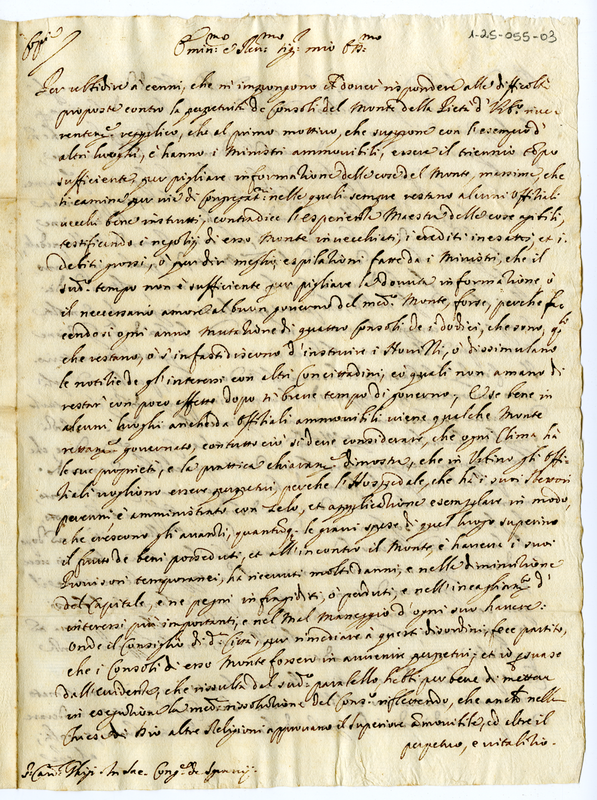 Copia
1-25-055-03
Emin.mo e Rev.mo Sig.r mio Oss.mo
Per ubbidire à cenni, che m'impongono il dover rispondere alle difficoltà
proposte contro la perpetuità de Consoli del Monte della Pietà d'Urb.o rive-
rentem.te replico, che al primo mottivo, che suppone con l'esempio d'
altri luoghi, è hanno i Ministri ammovibili, essere il triennio tempo
sufficiente per pigliare informatione delle cose del Monte, massime, che
si camina per vie di Congregat.i nelle quali sempre restano alcuni offitiali
vecchi bene instrutti, contradice l'esperienza Maestra delle cose agibili,
testificando i negotij di esso Monte invecchiati, i crediti inesatti, et i
debiti grossi, ò per dir meglio espilationi fatte da i Ministri, che il
sud.o tempo non è sufficiente per pigliare la dovuta informatione, ò
il necessario amore al buon governo del med.o Monte, forse, perche fa-
cendosi ogni anno Mutatione di quattro Consoli de i dodici, che sono, gl'
che restano, ò s'infastidiscono d'instruire i Novelli, ò dissimulano
le notitie de gl'interessi con altri Concittadini, co' quali non amano di
restar con poco affetto dopo sì breve tempo di governo, E se bene in
alcuni luoghi anche da Offitiali ammovibili viene qualche Monte
rettam.te governato, contuttociò si deve considerare, che ogni Clima hà
le sue proprietà, e la prattica chiaram.te dimostra, che in Urbino gli Offi-
tiali vogliono essere perpetui, perche l'Hospedale, che hà i suoi
perenni è amministrato con zelo, et applicatione esemplare in modo,
che crescono gli avanzi, quantunq. le gravi spese di quel luogo superino
il frutto de beni posseduti, et all'incontro il Monte, è havere i suoi
Provisori temporanei, hà ricevuti molti danni, e nelle diminutione
del Capitale, e ne pegni infragiditi, ò perduti, e nell' d'
interessi più importanti, e nel Mal Maneggio d'ogni suo havere:
Onde il Consiglio di d.a Città, per rimediare à questi disordini, fece partito,
che i Consoli di esso Monte fossero in avvenire perpetui; et io persuaso
dall'evidente, che risulta dal sud.o paralello hebbi per bene di mettere
in esecutione la med.a rissolutione del Cons.o riflettendo, che anche nella
Chiesa di Dio altre Religioni approvano il Superiore amovibile, ed altre il
perpetuo, e vitalitio.
In Sac. Cong.